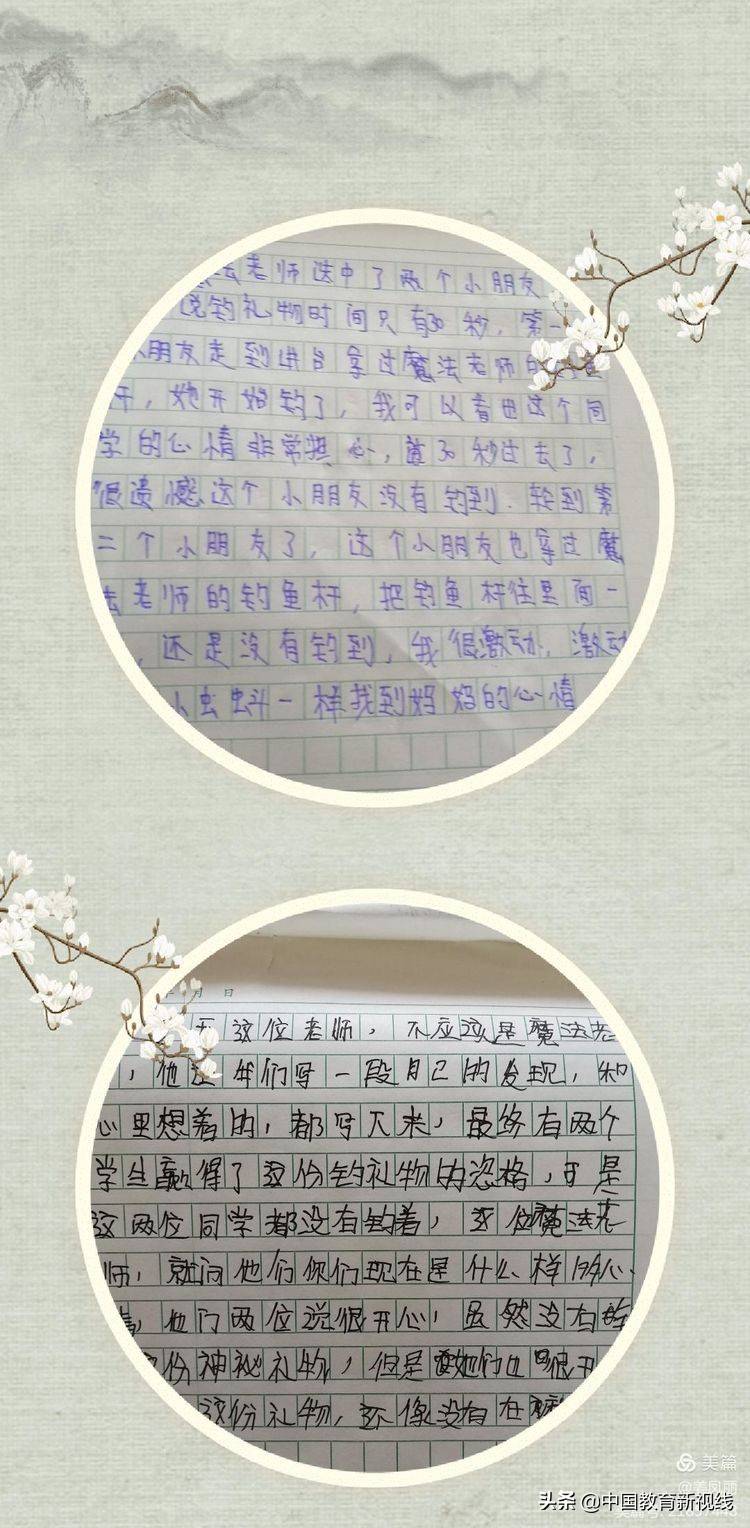 法老师选中了两个小朋友
说钓礼物时间只有30秒，第一
小朋友走到讲台拿过魔法老师的钓鱼
杆，她开始钓了，我可以看出这个同
学的心情非常担心，30秒过去了，
很遗憾这个小朋友没有钓到．轮到第
二个小朋友了，这个小朋友也拿过魔
法老师的钓鱼杆，把钓鱼杆往里面一
，还是没有钓到，我很激动，激动
小虫蚪一样找到妈妈的心情
月 日
这位老师，不应该是魔法老
，他让我们写一段自己的发现，和
心里想着的，都写下来，最终有两个
学生赢得了这份钓礼物的资格，可是
这两位同学都没有钓着，这位魔法老
师，就问他们你们现在是什么样的心
，他们两位说很开心，虽然没有
份神秘礼物，但是她们也很开
这份礼物，还像没有在
美篇
@姜凤丽
头条 @中国教育新视线